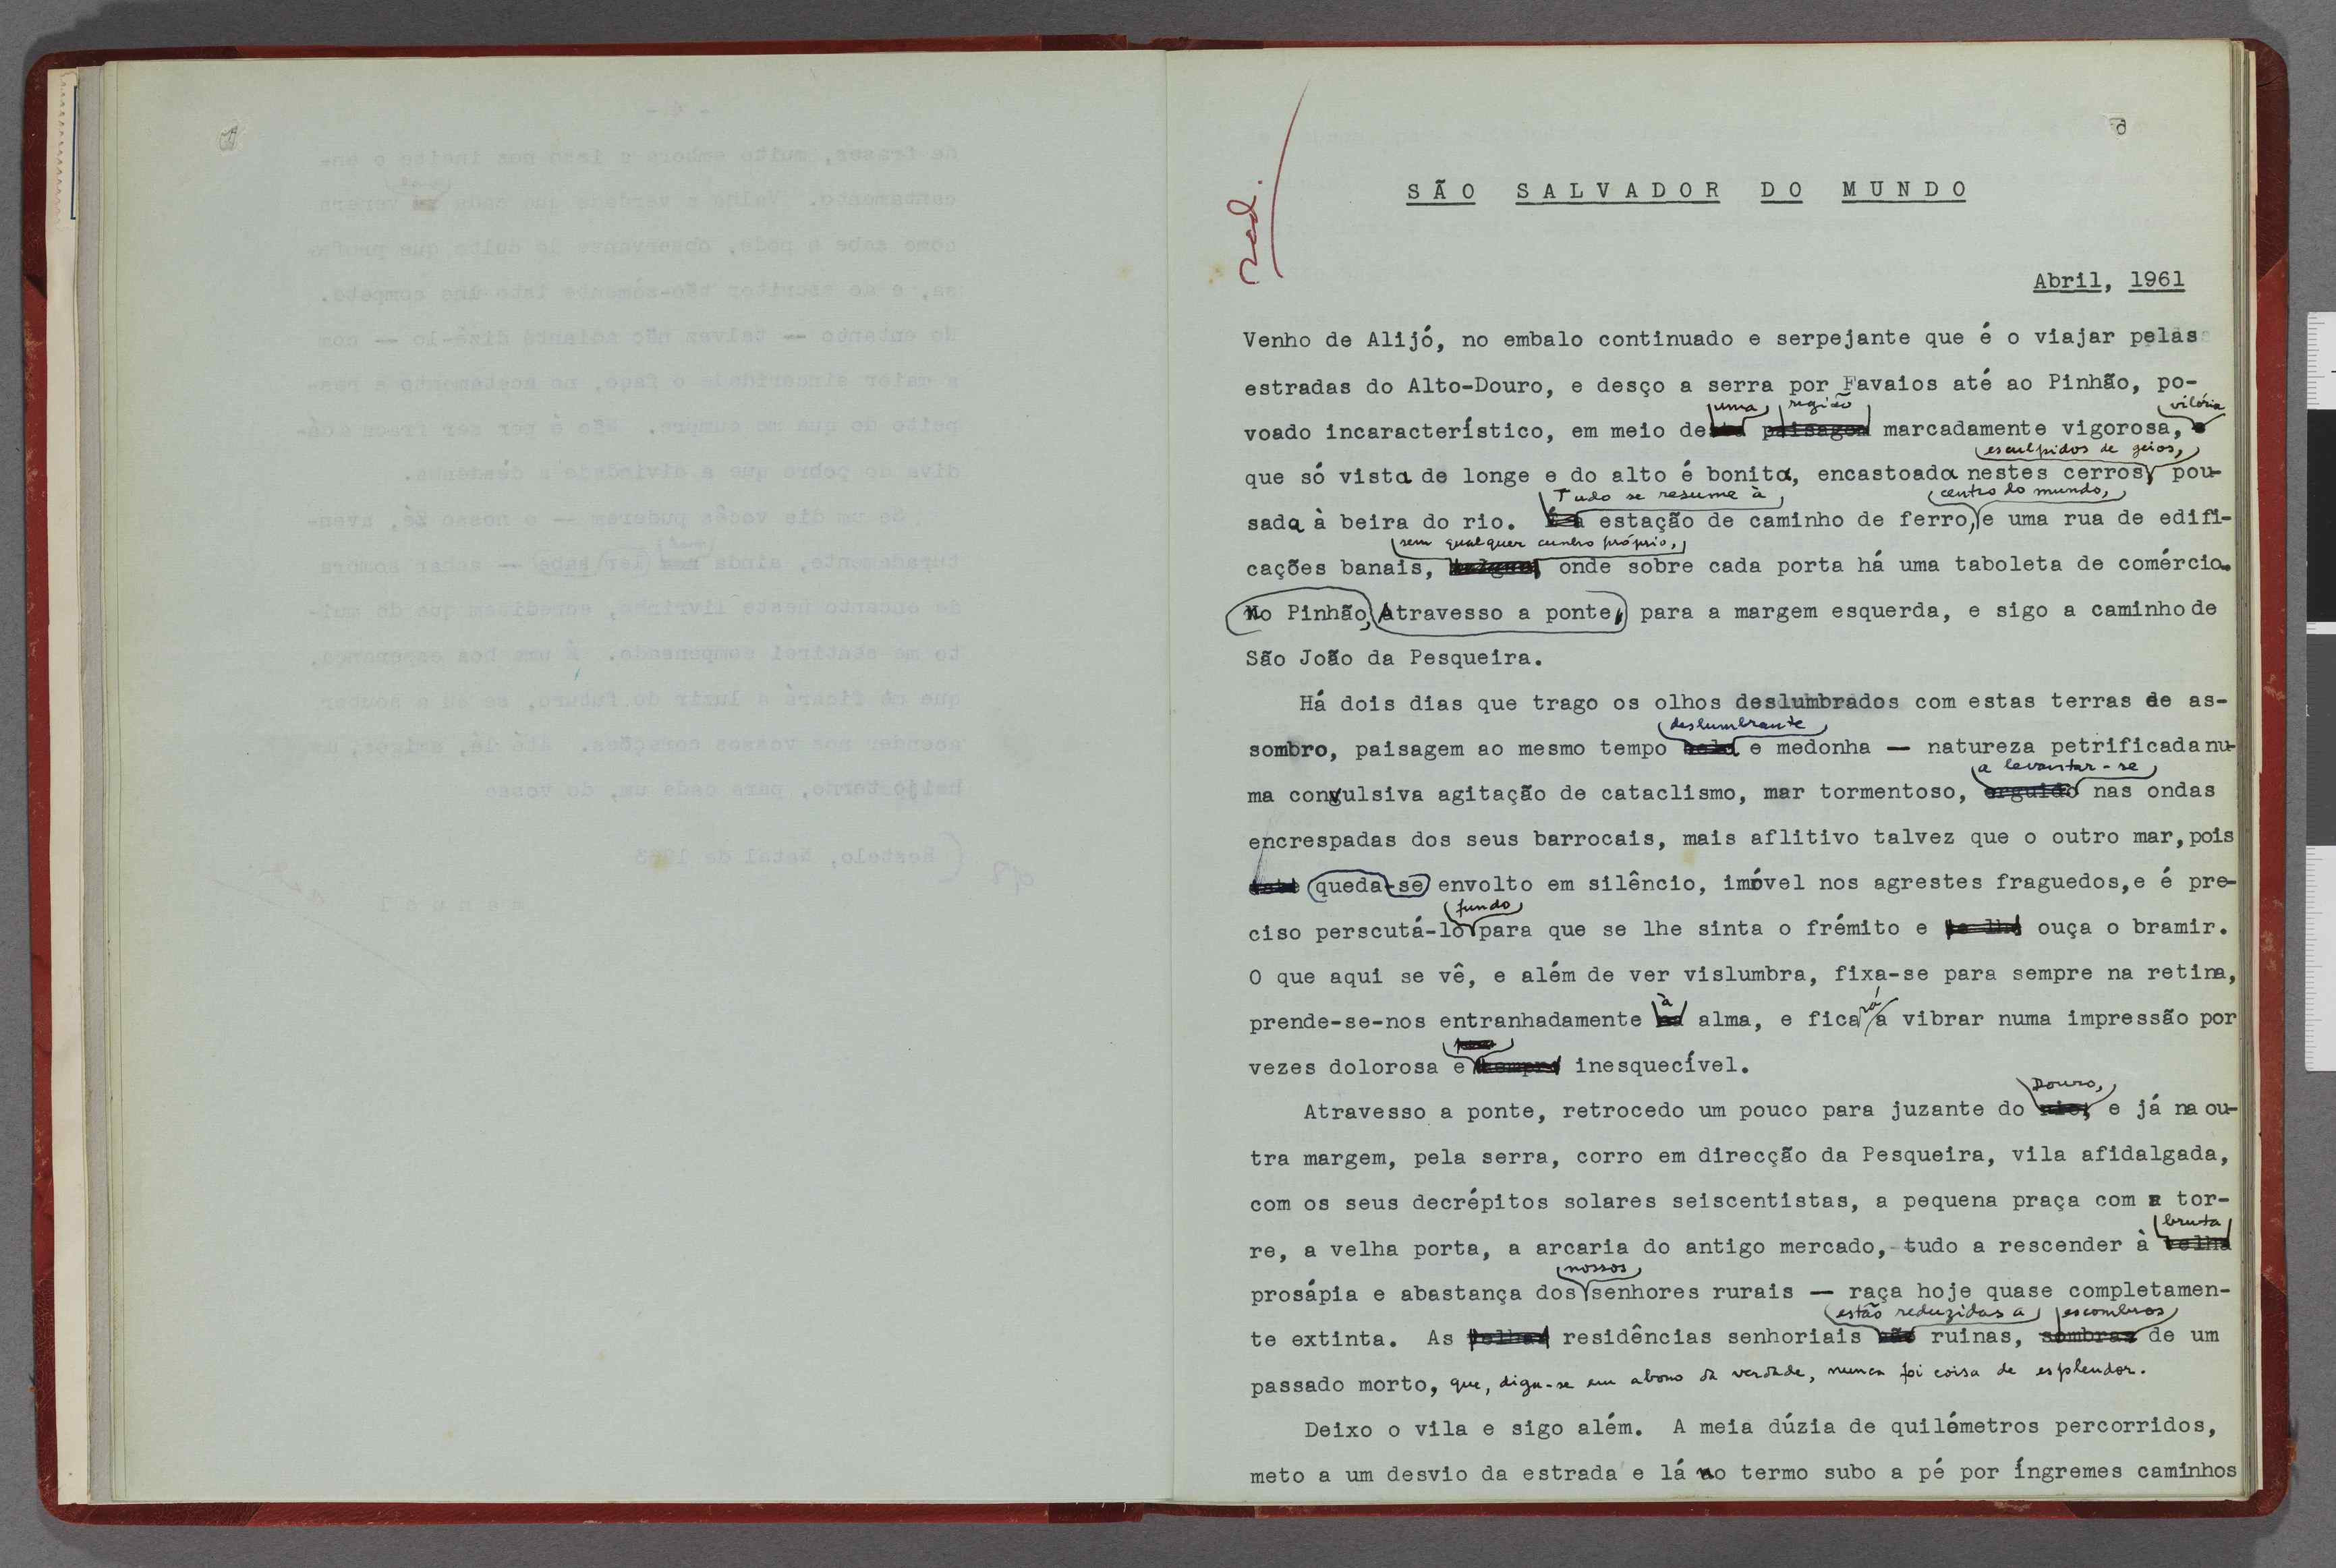 red.
SÃO SALVADOR DO MUNDO
Abril, 1961
Venho de Alijó, no embalo continuado e serpejante que é o viajar pelas
estradas do Alto-Douro, e desço a serra por Favaios até ao Pinhão, po-
uma região
voado incaracterístico, em meio de paisagem marcadamente vigorosa,
esculpidos de geios,
que só vista de longe e do alto é bonita, encastoada nestes cerros, pou-
Tudo se resume à centro do mundo,
sada à beira do rio. É a estação de caminho de ferro, e uma rua de edifi-
sem qualquer cunho próprio,
cações banais, onde sobre cada porta há uma taboleta de comércio.
No Pinhão, Atravesso a ponte, para a margem esquerda, e sigo a caminho de
São João da Pesqueira.
Há dois dias que trago os olhos deslumbrados com estas terras de as-
deslumbrante
sombro, paisagem ao mesmo tempo bela e medonha — natureza petrificada nu-
a levantar-se
ma convulsiva agitação de cataclismo, mar tormentoso, erguido nas ondas
encrespadas dos seus barrocais, mais aflitivo talvez que o outro mar, pois
queda-se envolto em silêncio, imóvel nos agrestes fraguedos, e é pre-
fundo
ciso perscutá-lo para que se lhe sinta o frémito e se lhe ouça o bramir.
O que aqui se vê, e além de ver vislumbra, fixa-se para sempre na retina,
à rá
prende-se-nos entranhadamente na alma, e fica a vibrar numa impressão por
vezes dolorosa e sempre inesquecível.
Douro,
Atravesso a ponte, retrocedo um pouco para juzante do rio, e já na ou-
tra margem, pela serra, corro em direcção da Pesqueira, vila afidalgada,
com os seus decrépitos solares seiscentistas, a pequena praça com a tor-
bruta
re, a velha porta, a arcaria do antigo mercado, tudo a rescender à velha
nossos
prosápia e abastança dos senhores rurais — raça hoje quase completamen-
estão reduzidas a escombros
te extinta. As velhas residências senhoriais são ruinas, sombras de um
passado morto, que, diga-se em abono da verdade, nunca foi coisa de esplendor.
Deixo o vila e sigo além. A meia dúzia de quilómetros percorridos,
meto a um desvio da estrada e lá no termo subo a pé por íngremes caminhos